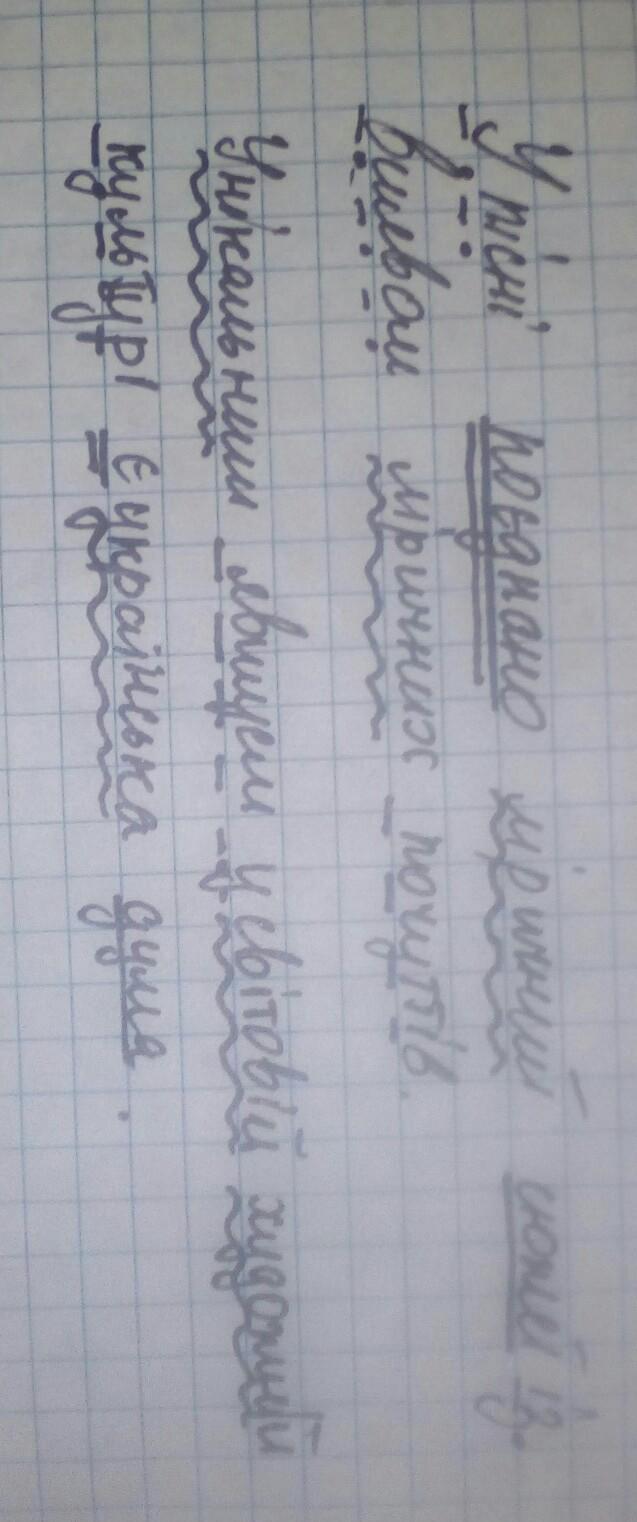 У пісні поєднано ліричний сюжет із
виявом ліричних почуттів.
Унікальним явищем у світовій художній
культурі є українська дума.